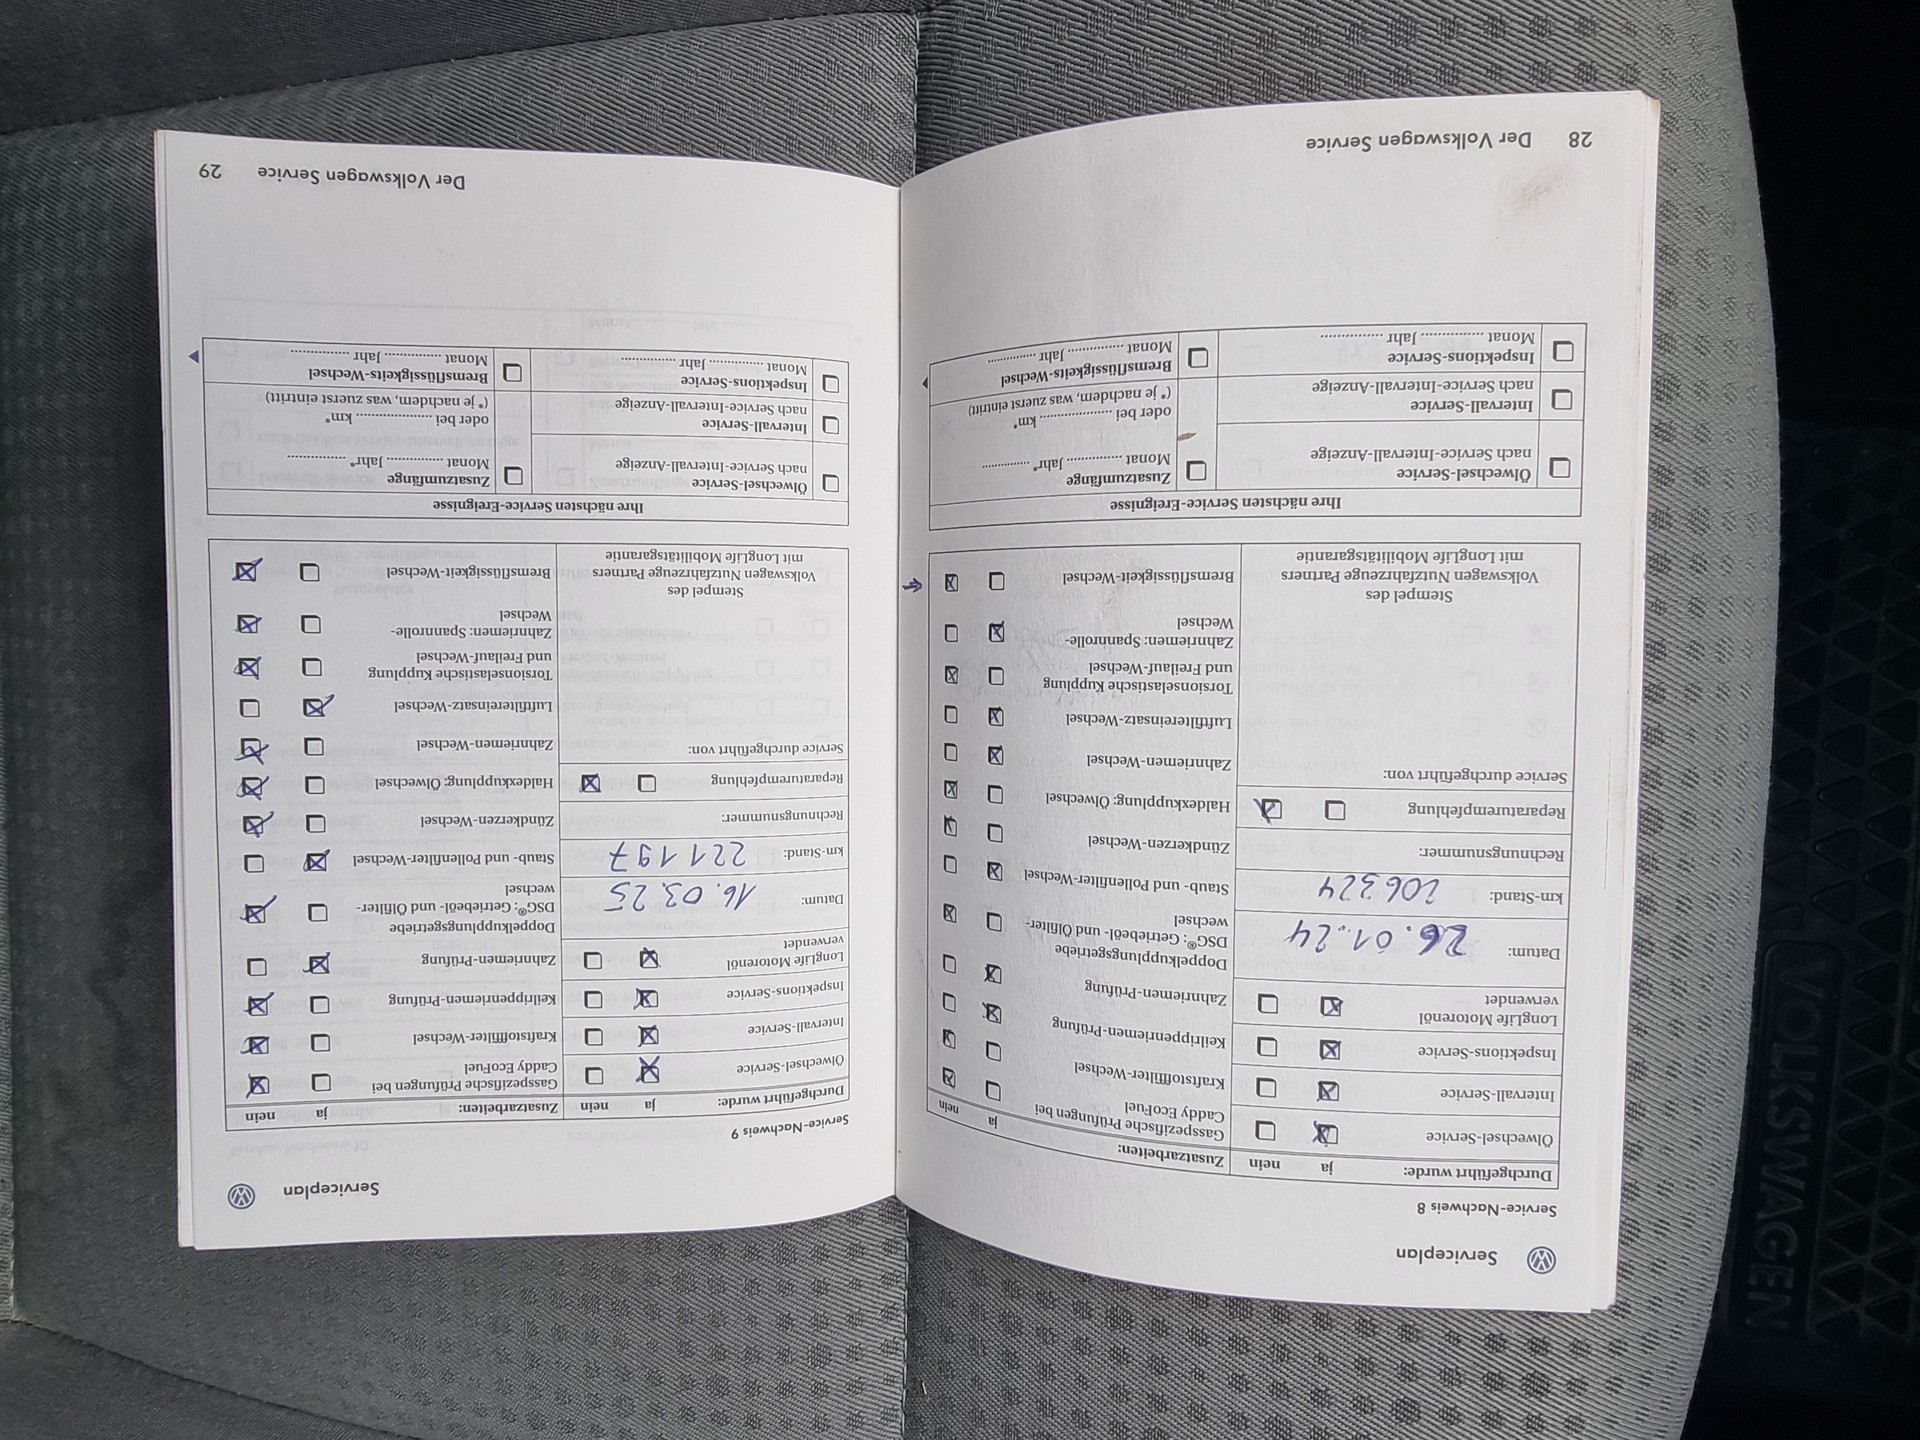 Serviceplan
Service-Nachweis 8
Durchgeführt wurde: ja nein
Ölwechsel-Service ☒ ☐
Intervall-Service ☒ ☐
Inspektions-Service ☒ ☐
LongLife Motorenöl
verwendet ☒ ☐
Datum: 26.01.24
km-Stand: 206324
Rechnungsnummer:
Reparaturempfehlung ☐ ☒
Service durchgeführt von:
Stempel des
Volkswagen Nutzfahrzeuge Partners
mit LongLife Mobilitätsgarantie
Zusatzarbeiten: ja nein
Gasspezifische Prüfungen bei
Caddy EcoFuel ☐ ☒
Kraftstofffilter-Wechsel ☐ ☒
Keilrippenriemen-Prüfung ☒ ☐
Zahnriemen-Prüfung ☒ ☐
Doppelkupplungsgetriebe
DSG®: Getriebeöl- und Ölfilter-
wechsel ☐ ☒
Staub- und Pollenfilter-Wechsel ☒ ☐
Zündkerzen-Wechsel ☐ ☒
Haldexkupplung: Ölwechsel ☐ ☒
Zahnriemen-Wechsel ☒ ☐
Luftfiltereinsatz-Wechsel ☒ ☐
Torsionselastische Kupplung
und Freilauf-Wechsel ☐ ☒
Zahnriemen: Spannrolle-
Wechsel ☒ ☐
Bremsflüssigkeit-Wechsel ☐ ☒
Ihre nächsten Service-Ereignisse
☐ Ölwechsel-Service
nach Service-Intervall-Anzeige
☐ Intervall-Service
nach Service-Intervall-Anzeige
☐ Inspektions-Service
Monat ............... Jahr ...............
☐ Zusatzumfänge
Monat ............... Jahr* ...............
oder bei .................... km*
(* je nachdem, was zuerst eintritt)
☐ Bremsflüssigkeits-Wechsel
Monat ............... Jahr ...............
28 Der Volkswagen Service
Serviceplan
Service-Nachweis 9
Durchgeführt wurde: ja nein
Ölwechsel-Service ☒ ☐
Intervall-Service ☒ ☐
Inspektions-Service ☒ ☐
LongLife Motorenöl
verwendet ☒ ☐
Datum: 16.03.25
km-Stand: 221197
Rechnungsnummer:
Reparaturempfehlung ☐ ☒
Service durchgeführt von:
Stempel des
Volkswagen Nutzfahrzeuge Partners
mit LongLife Mobilitätsgarantie
Zusatzarbeiten: ja nein
Gasspezifische Prüfungen bei
Caddy EcoFuel ☐ ☒
Kraftstofffilter-Wechsel ☐ ☒
Keilrippenriemen-Prüfung ☐ ☒
Zahnriemen-Prüfung ☒ ☐
Doppelkupplungsgetriebe
DSG®: Getriebeöl- und Ölfilter-
wechsel ☐ ☒
Staub- und Pollenfilter-Wechsel ☒ ☐
Zündkerzen-Wechsel ☐ ☒
Haldexkupplung: Ölwechsel ☐ ☒
Zahnriemen-Wechsel ☐ ☒
Luftfiltereinsatz-Wechsel ☒ ☐
Torsionselastische Kupplung
und Freilauf-Wechsel ☐ ☒
Zahnriemen: Spannrolle-
Wechsel ☐ ☒
Bremsflüssigkeit-Wechsel ☐ ☒
Ihre nächsten Service-Ereignisse
☐ Ölwechsel-Service
nach Service-Intervall-Anzeige
☐ Intervall-Service
nach Service-Intervall-Anzeige
☐ Inspektions-Service
Monat ............... Jahr ...............
☐ Zusatzumfänge
Monat ............... Jahr* ...............
oder bei .................... km*
(* je nachdem, was zuerst eintritt)
☐ Bremsflüssigkeits-Wechsel
Monat ............... Jahr ...............
Der Volkswagen Service 29
VOLKSWAGEN